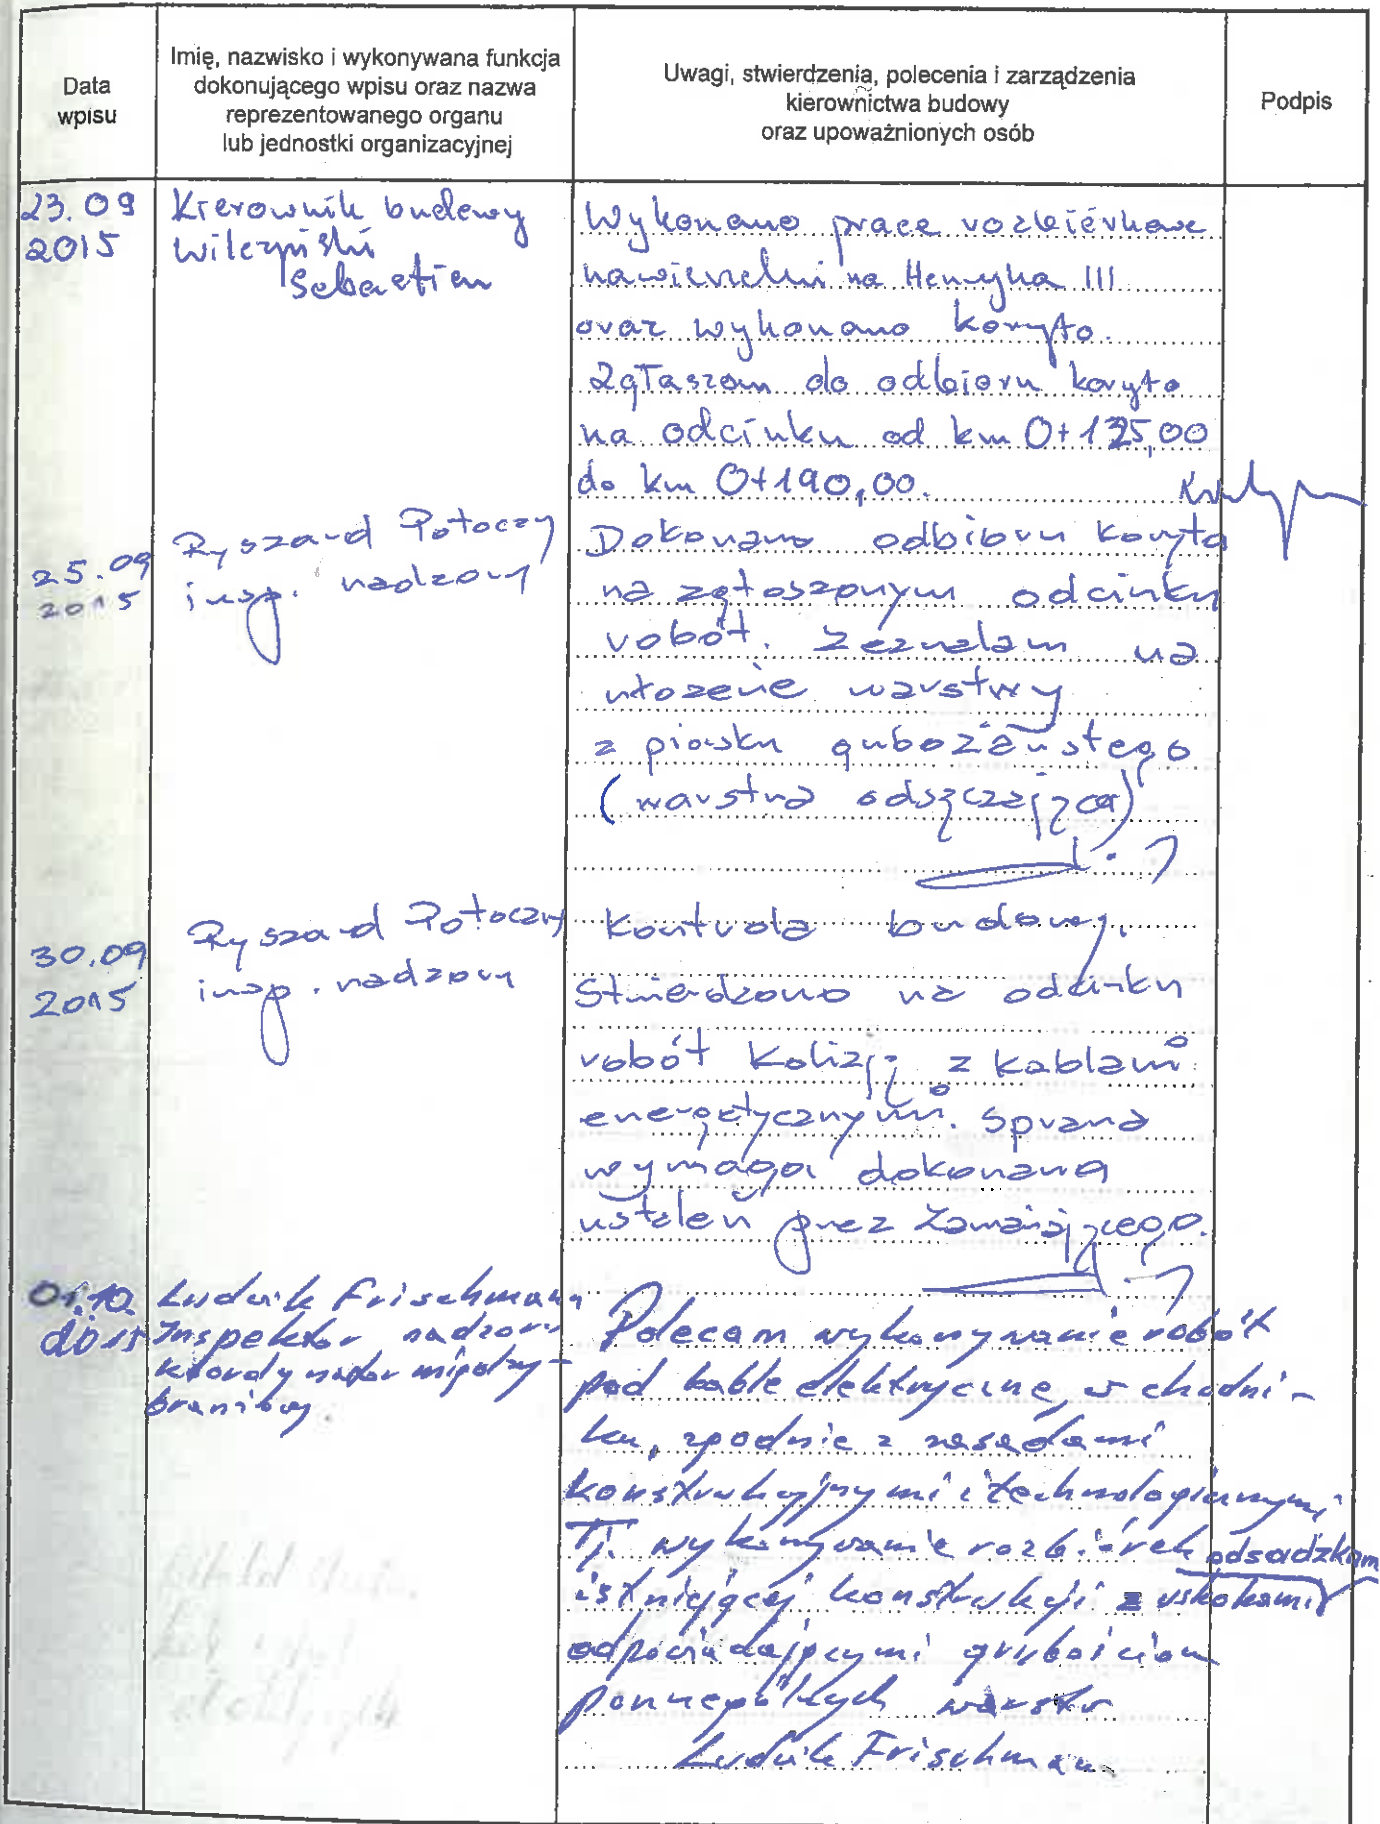 Data
wpisu
Imię, nazwisko i wykonywana funkcja
dokonującego wpisu oraz nazwa
reprezentowanego organu
lub jednostki organizacyjnej
Uwagi, stwierdzenia, polecenia i zarządzenia
kierownictwa budowy
oraz upoważnionych osób
Podpis
23.09
2015
Kierownik budowy
Wilczyński
Sebastian
Wykonano prace rozbiórkowe
nawierzchni na Henryka III
oraz wykonano koryto.
Zgłaszam do odbioru koryto
na odcinku od km 0+125,00
do km 0+190,00.
25.09
2015
Ryszard Potoczny
insp. nadzoru
Dokonano odbioru koryta
na zgłoszonym odcinku
robót. Zezwalam na
ułożenie warstwy
z piasku gruboziarnistego
(warstwa odsączająca)
30.09
2015
Ryszard Potoczny
insp. nadzoru
Kontrola budowy.
Stwierdzono na odcinku
robót kolizję z kablami
energetycznymi. Sprawa
wymaga dokonania
ustaleń przez Zamawiającego.
01.10
2015
Ludwik Frischmann
Inspektor nadzoru
branżowy
Polecam wykonywanie robót
pod kable elektryczne, w chodni-
ku, zgodnie z zasadami
konstrukcyjnymi i technologicznymi
Tj. wykonywanie rozbiórek odsadzkam
istniejącej konstrukcji z uskokami
odpowiadającymi grubościom
poszczególnych warstw
Ludwik Frischmann